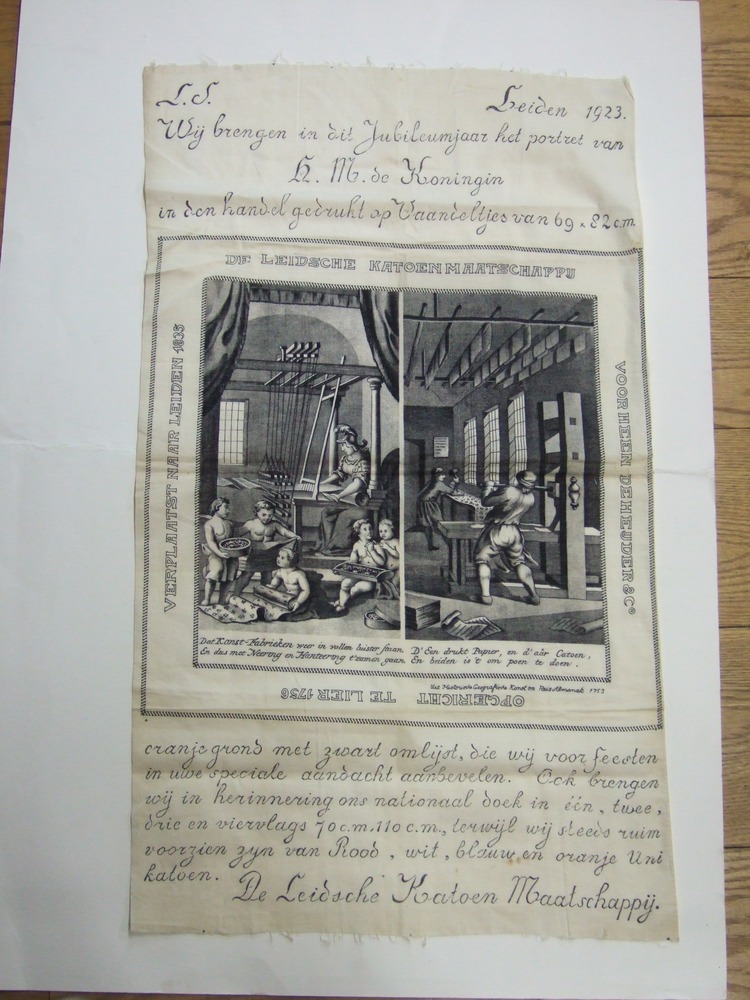 L.S. Leiden 1923.
Wij brengen in dit Jubileumjaar het portret van
H. M. de Koningin
in den handel gedrukt op Vaandeltjes van 69 x 82 c.m.
DE LEIDSCHE KATOENMAATSCHAPPIJ
VERPLAATST NAAR LEIDEN 1835
VOORHEEN DE HEIJDER & Co
Dat Konst-Fabrieken weer in vollen luister staan
En dus met Neering en Hanteering t'zamen gaan
D' Een drukt Papier, en d' aâr Catoen,
En beiden is 't om poen te doen.
Uit Historische Geografische Konst en Reis Almanak 1753
OPGERICHT TE LIER 1756
oranje grond met zwart omlijst, die wij voor feesten
in uwe speciale aandacht aanbevelen. Ook brengen
wij in herinnering ons nationaal doek in één, twee,
drie en viervlags 70 c.m. 110 c.m., terwijl wij steeds ruim
voorzien zyn van Rood, wit, blauw en oranje Uni
katoen.
De Leidsche Katoen Maatschappij.